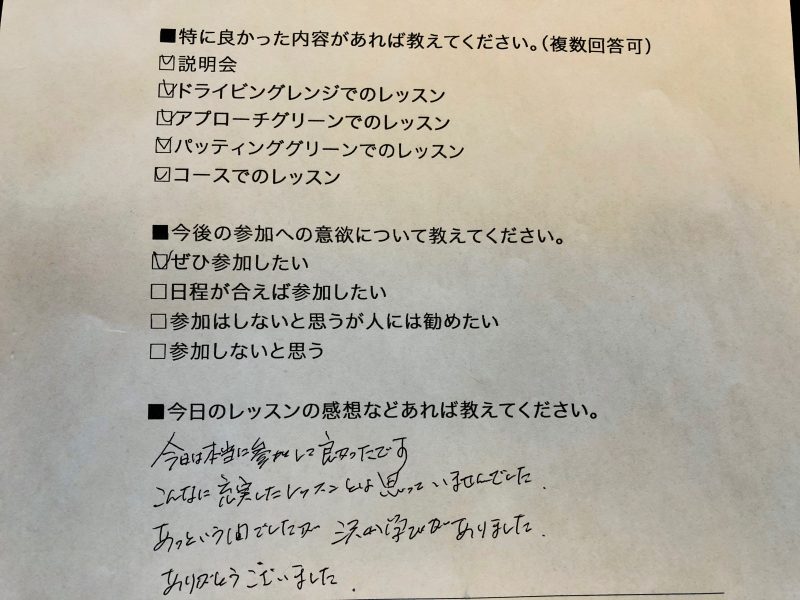 ■特に良かった内容があれば教えてください。（複数回答可）
☑説明会
☑ドライビングレンジでのレッスン
☑アプローチグリーンでのレッスン
☑パッティンググリーンでのレッスン
☑コースでのレッスン
■今後の参加への意欲について教えてください。
☑ぜひ参加したい
□日程が合えば参加したい
□参加はしないと思うが人には勧めたい
□参加しないと思う
■今日のレッスンの感想などあれば教えてください。
今日は本当に参加して良かったです
こんなに充実したレッスンとは思っていませんでした.
あっという間でしたが 沢山学びがありました.
ありがとうございました.